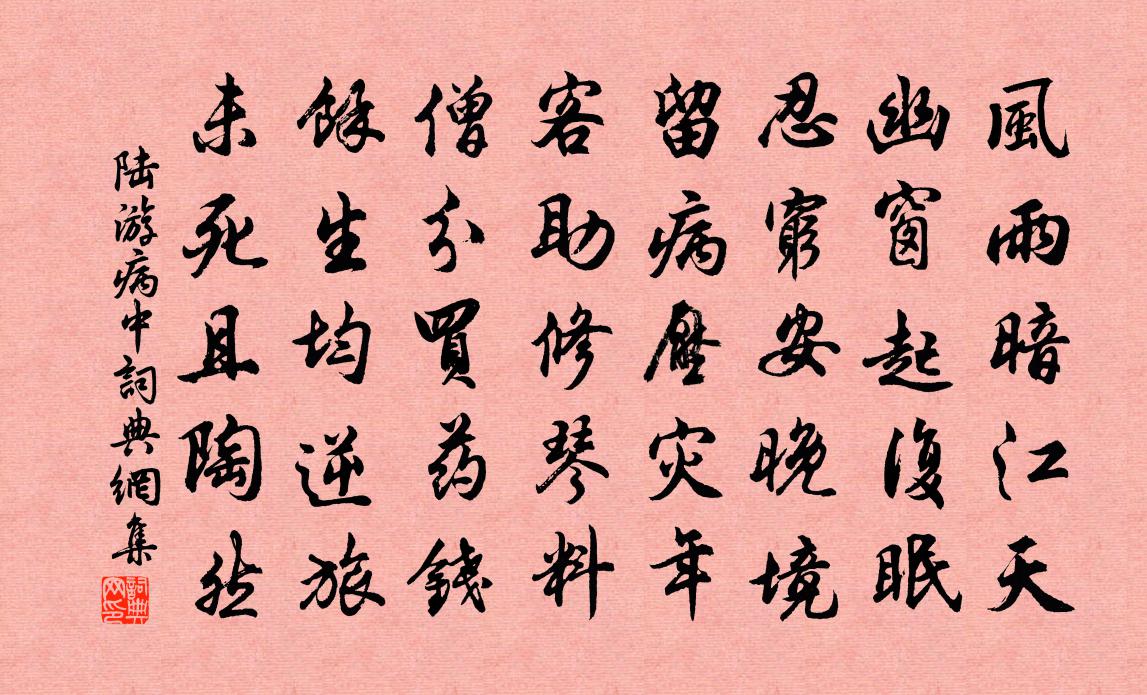 風雨暗江天
幽窗起復眠
忍窮安晚境
留病壓灾年
客助修琴料
僧分買药錢
餘生均逆旅
未死且陶然
陆游病中詞典網集
詞典
网印